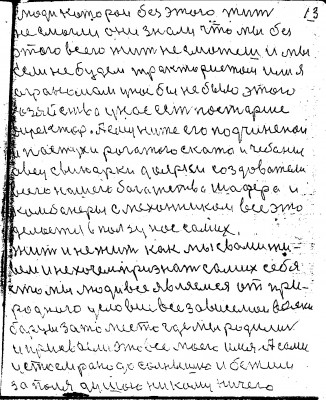 люди которои без этого жит 13
не смогли они знали что мы без
этого всего жит не сможем и мы
если не будем трактористом или я
агрономом у нас бы не было этого
хозяйства у нас ест постарше
директор. Кому них его подчиненои
и пастухи рогатого скота и чебаны
овец свинарки доярки создователи
всего нашего богатства шафера и
комбанеры с механиком все это
делается в ползу нас самих.
жит и не жит как мы свами ти-
шем и нехочем признат самих себя
что мы люди все являемся от при-
родного условие все зависимои
за то место где мы родилис
и приехали это все моего имя. А сами
и стоим рано до солнышко и бежим
за поля душою никому ничего